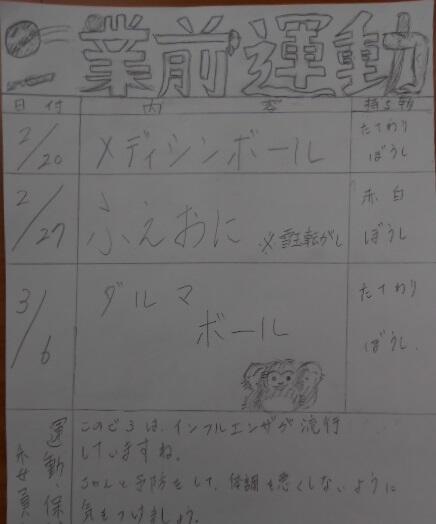 業前運動
日付 内容 持ち物
2/20 メディシンボール たてわりぼうし
2/27 ふえおに ※雪玉転がし 赤白ぼうし
3/6 ダルマボール たてわりぼうし
運動・保
このごろは、インフルエンザが流行
していますね。
きちんと予防をして、体調を悪くしないように
気をつけましょう。